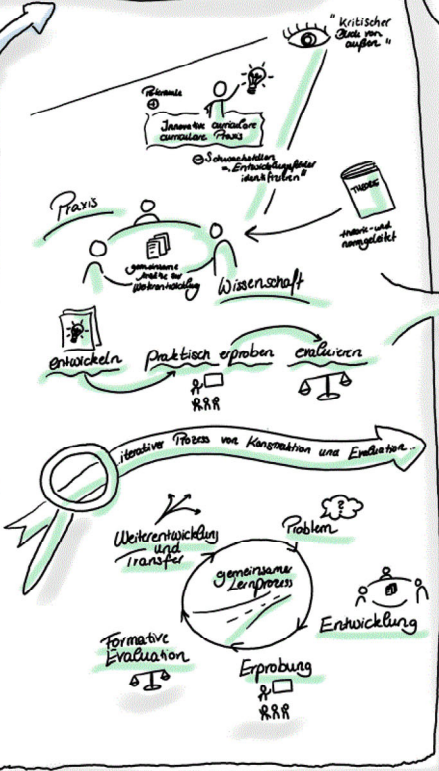 "Kritischer
Blick von
außen"
Potenziale
⊕
Innovative curriculare
curriculare Praxis
⊖ Schwachstellen
= "Entwicklungsfelder
identifizieren"
THEORIE
theorie- und
normgeleitet
Praxis
gemeinsame
Weiterentwicklung
Wissenschaft
entwickeln
praktisch erproben
evaluieren
iterativer Prozess von Konstruktion und Evaluation...
Weiterentwicklung
und
Transfer
Problem
gemeinsamer
Lernprozess
Entwicklung
Formative
Evaluation
Erprobung